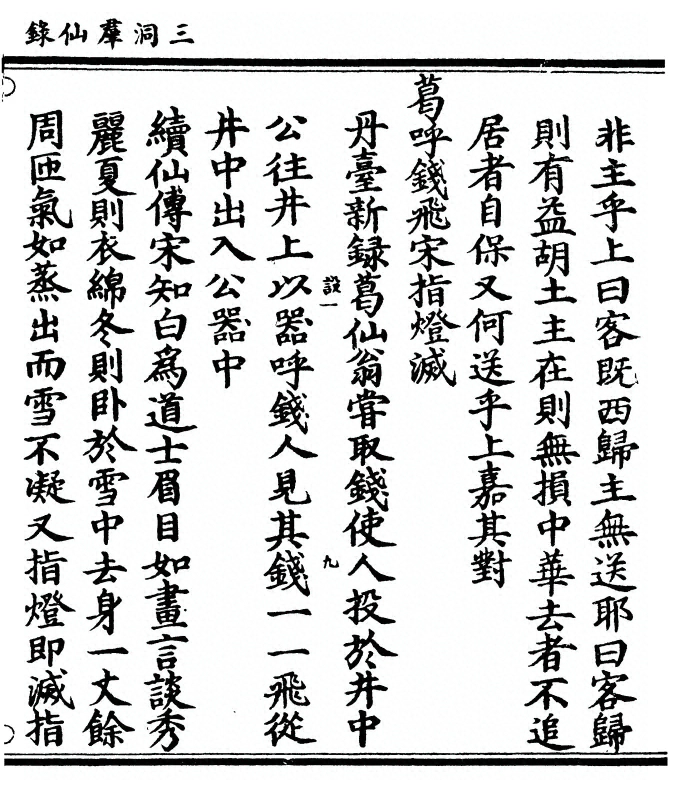 三洞羣仙錄
非主乎上曰客既西歸主無送耶曰客歸
則有益胡土主在則無損中華去者不追
居者自保又何送乎上嘉其對
葛呼錢飛宋指燈滅
丹臺新録葛仙翁嘗取錢使人投於井中
設一
九
公往井上以器呼錢人見其錢一一飛從
井中出入公器中
續仙傳宋知白爲道士眉目如畫言談秀
麗夏則衣綿冬則卧於雪中去身一丈餘
周匝氣如蒸出而雪不凝又指燈即滅指